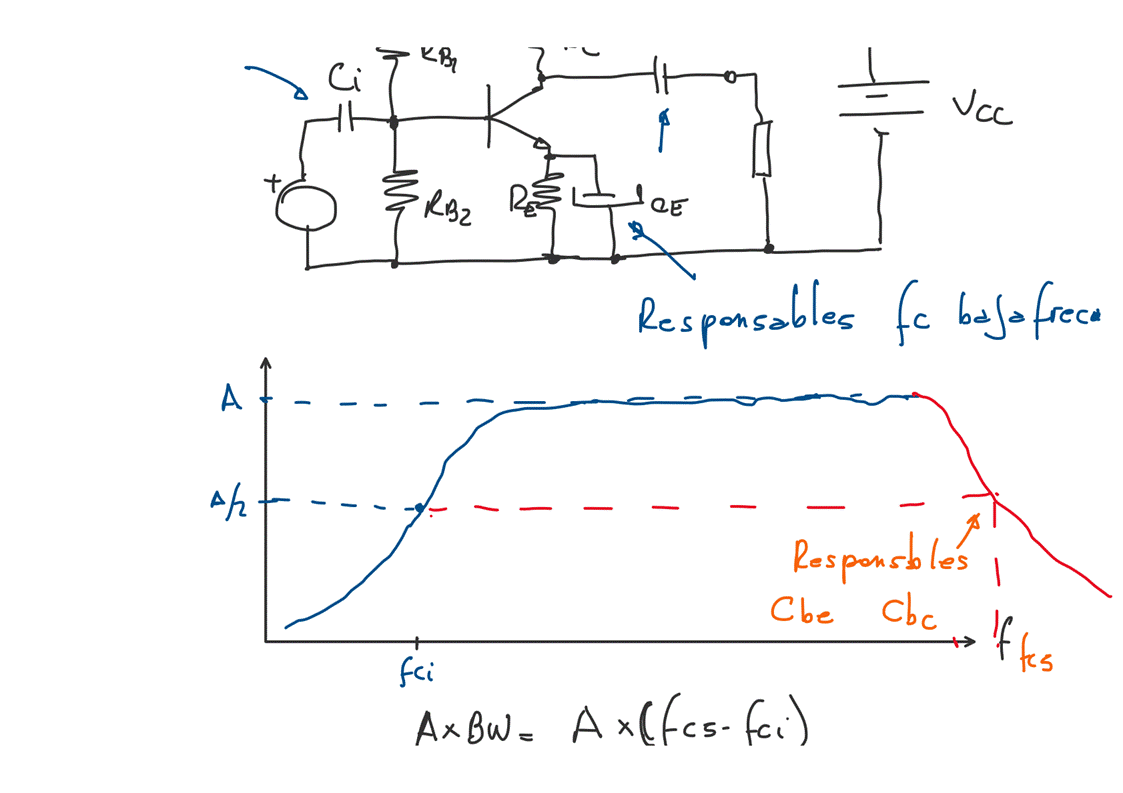 RB1
Ci
VCC
+
RB2
RE
CE
Responsables fc bajafrec
A
A/2
Responsbles
Cbe Cbc
f
fcs
fci
A x BW = A x (fcs - fci)